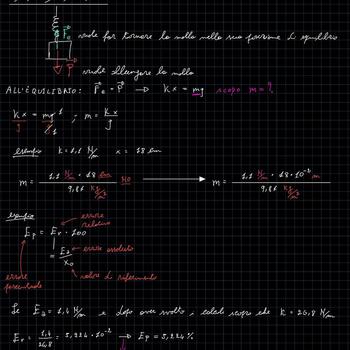 F⃗e vuole far tornare la molla nella sua posizione di equilibrio
P⃗ vuole allungare la molla
ALL'EQUILIBRIO: F⃗e = P⃗ → Kx = mg scopo m = ?
Kx/g = mg/g ; m = Kx/g
1
1
esempio K = 1,1 N/m x = 18 cm
m = 1,1 N/m · 18 cm / 9,81 NO → m = 1,1 N/m · 18·10⁻² m / 9,81
esempio
errore relativo
Ep = Er · 100
= Ea/x0 errore assoluto
valore di riferimento
errore percentuale
Se Ea = 1,4 N/m e dopo aver svolto i calcoli scopro che K = 26,8 N/m
Er = 1,4/26,8 = 5,224 · 10⁻² → Ep = 5,224 %